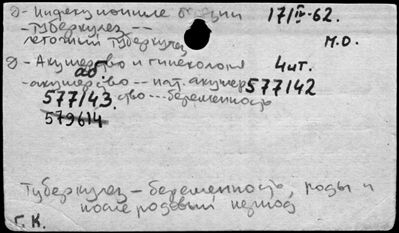 д - Инфекционные болезни 17/IV-62.
- туберкулез --
легочный туберкулез М.О.
д - Акушерство и гинекология 4шт.
аб
- акушерство -- пат. акушер 577142
577143 ство --- беременность
579614
Туберкулез - беременность, роды и
послеродовый период
Г. К.